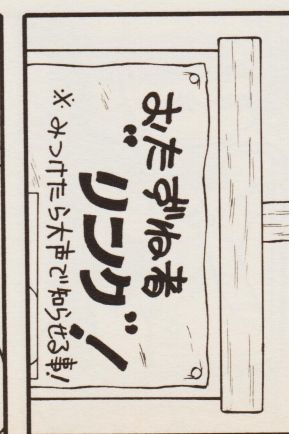 おたずね者
"リンク"!
※みつけたら大声で知らせる事!